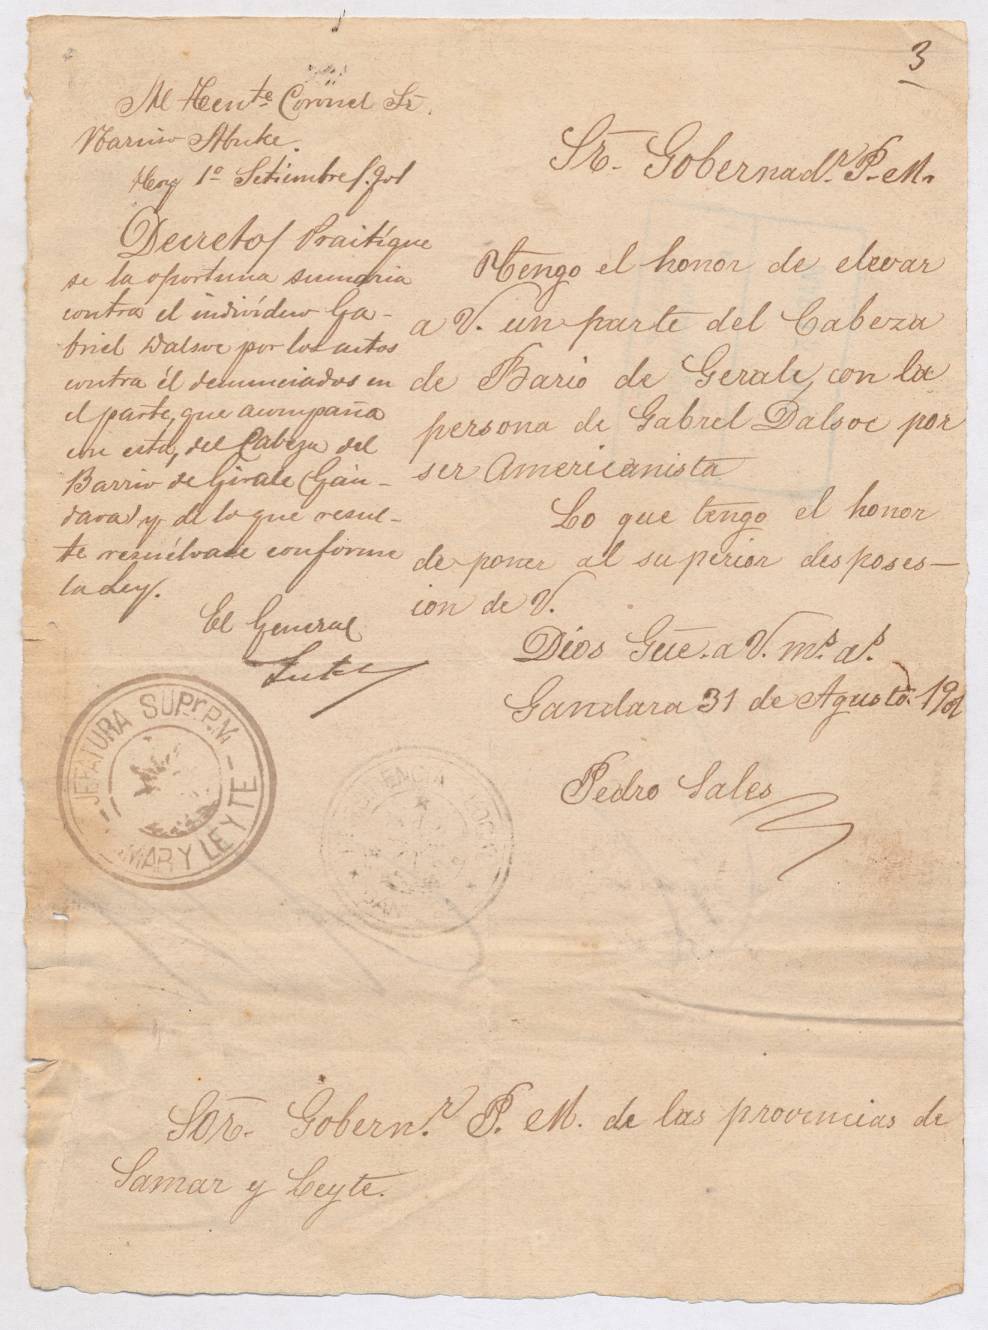 3
Al Tente Coronel Sr.
Narciso Abuke.
Hoy 1º Setiembre/901
Decreto/ Practíque
se la oportuna sumaria
contra el indivíduo Ga-
briel Dalsoc por los autos
contra él denunciados en
el parte, que acompaña
en esta, del Cabeza del
Barrio de Girale (Gán-
dara) y de lo que resul-
te resuélvase conforme
la Ley.
El General
JEFATURA SUPr. P.M.
SAMAR Y LEYTE
Sr. Gobernadr. P. M.
Tengo el honor de elevar
a V. un parte del Cabeza
de Bario de Gerale, con la
persona de Gabrel Dalsoc por
ser Americanista
Lo que tengo el honor
de poner al superior desposes-
ion de V.
Dios Gũe. a V. ms. as.
Gandara 31 de Agusto. 1901
Pedro Sales
Sõr. Gobernr. P. M. de las provincias de
Samar y Leyte.